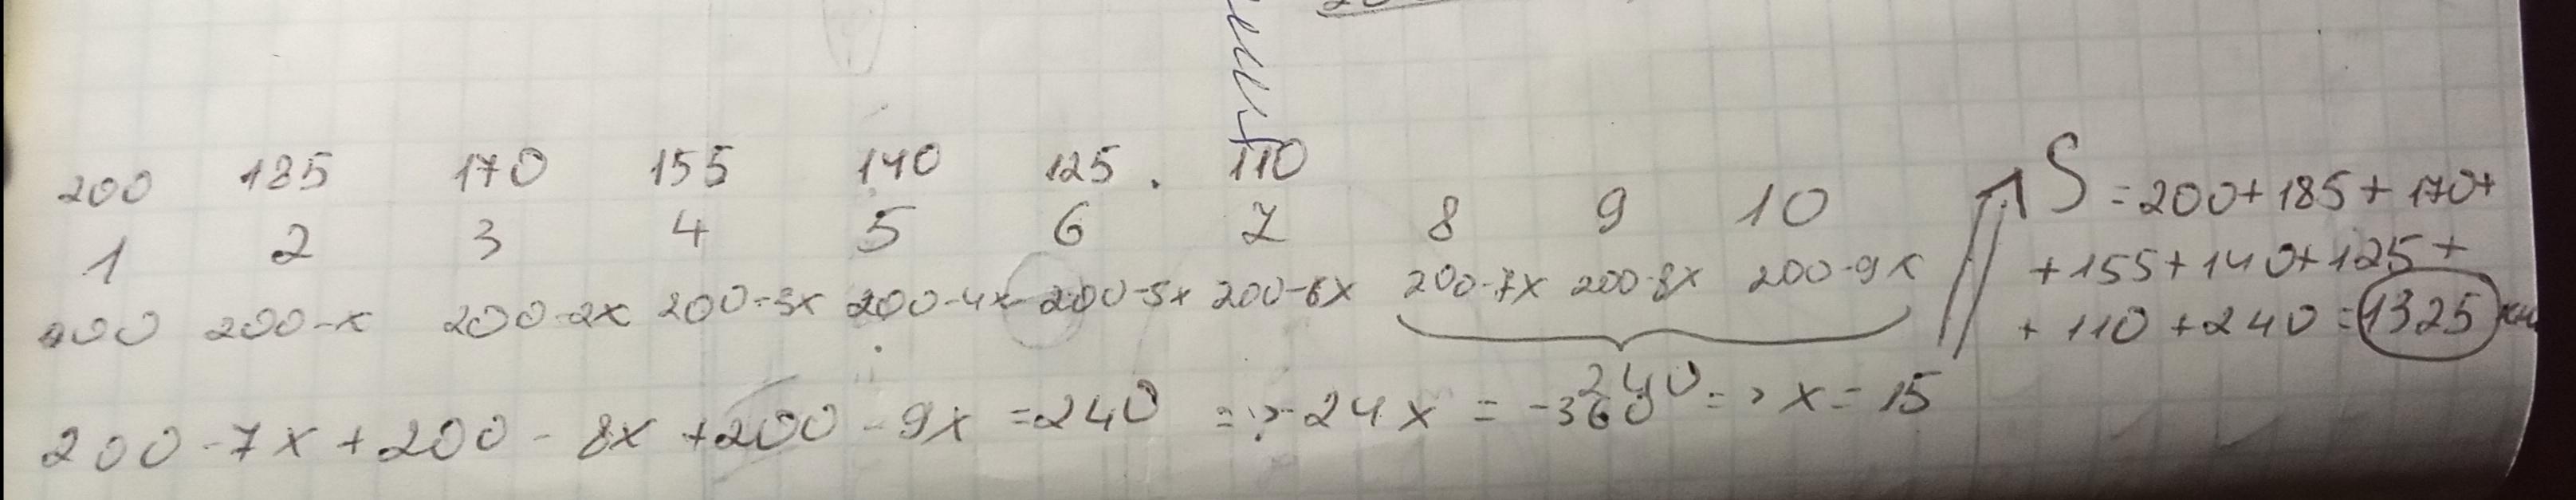 200 185 170 155 140 125 . 110
1 2 3 4 5 6 7 8 9 10
200 200-x 200-2x 200-3x 200-4x 200-5x 200-6x 200-7x 200-8x 200-9x
240
200-7x+200-8x+200-9x=240 => -24x=-360 => x=15
S=200+185+170+
+155+140+125+
+110+240=1325 км